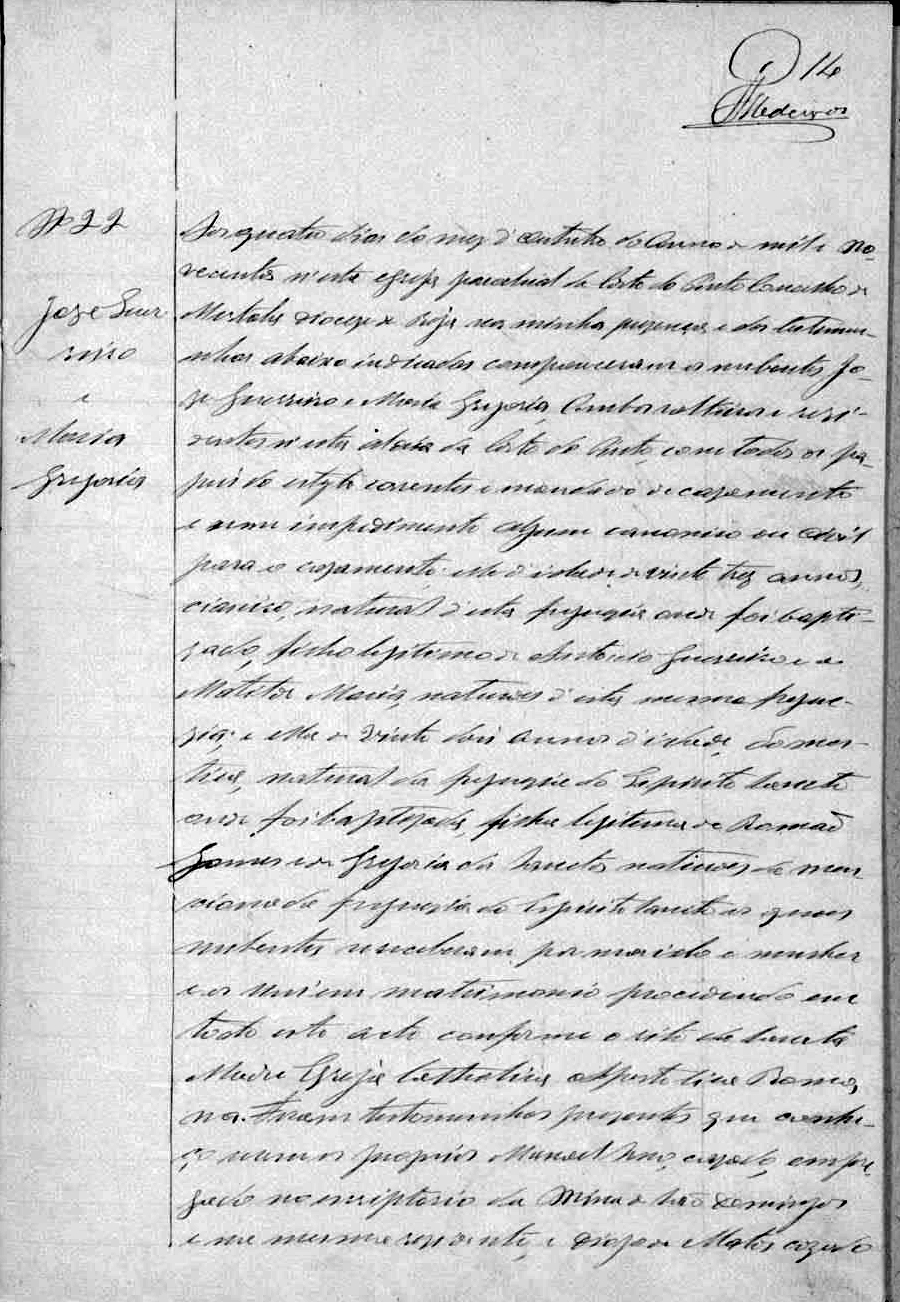 14
Medeiros
Nº 22
Jozé Guer
reiro
e
Maria
Gregoria
Aos quatro dias do mez d'Outubro do Anno de mil e no-
vecentos n'esta egreja parochial da Corte do Pinto Concelho de
Mertola diocese de Beja na minha presença e das testemu-
nhas abaixo indicadas compareceram os nubentes Jo-
zé Guerreiro e Maria Gregoria, Ambos solteiros e rezi-
dentes n'esta aldeia da Corte do Pinto, com todos os pa-
peis do estylo correntes e mandado de cazamento
e sem impedimento algum canonico ou civil
para o cazamento; elle d'idade de vinte trez annos,
natural d'esta freguezia onde foi bapti-
zado, filho legitimo de Antonio Guerreiro e de
Matilde Maria, naturaes d'esta mesma fregue-
zia; e ella de vinte dois annos d'idade, domes-
tica, natural da freguezia do Espirito Sancto
onde foi baptizada, filha legitima de Romão
Gomes e de Gregoria dos Sanctos naturaes da men-
cionada freguezia do Espirito Sancto os quaes
nubentes se receberam por marido e mulher
e os uni em matrimonio procedendo em
todo este acto conforme o rito da Sancta
Madre Egreja Catholica Apostolica Roma-
na. Foram testemunhas prezentes que conhe-
ço serem os proprios Manoel cazado, empre-
gado no escriptorio da Mina de São Domingos
e na mesma rezidente, e Diogo de Matos cazado